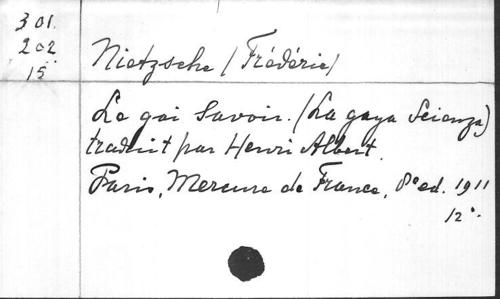 301.
202
15
Nietzsche (Frédéric)
Le gai Savoir. (La gaya Scienza)
traduit par Henri Albert.
Paris, Mercure de France, 8º ed. 1911
12º.